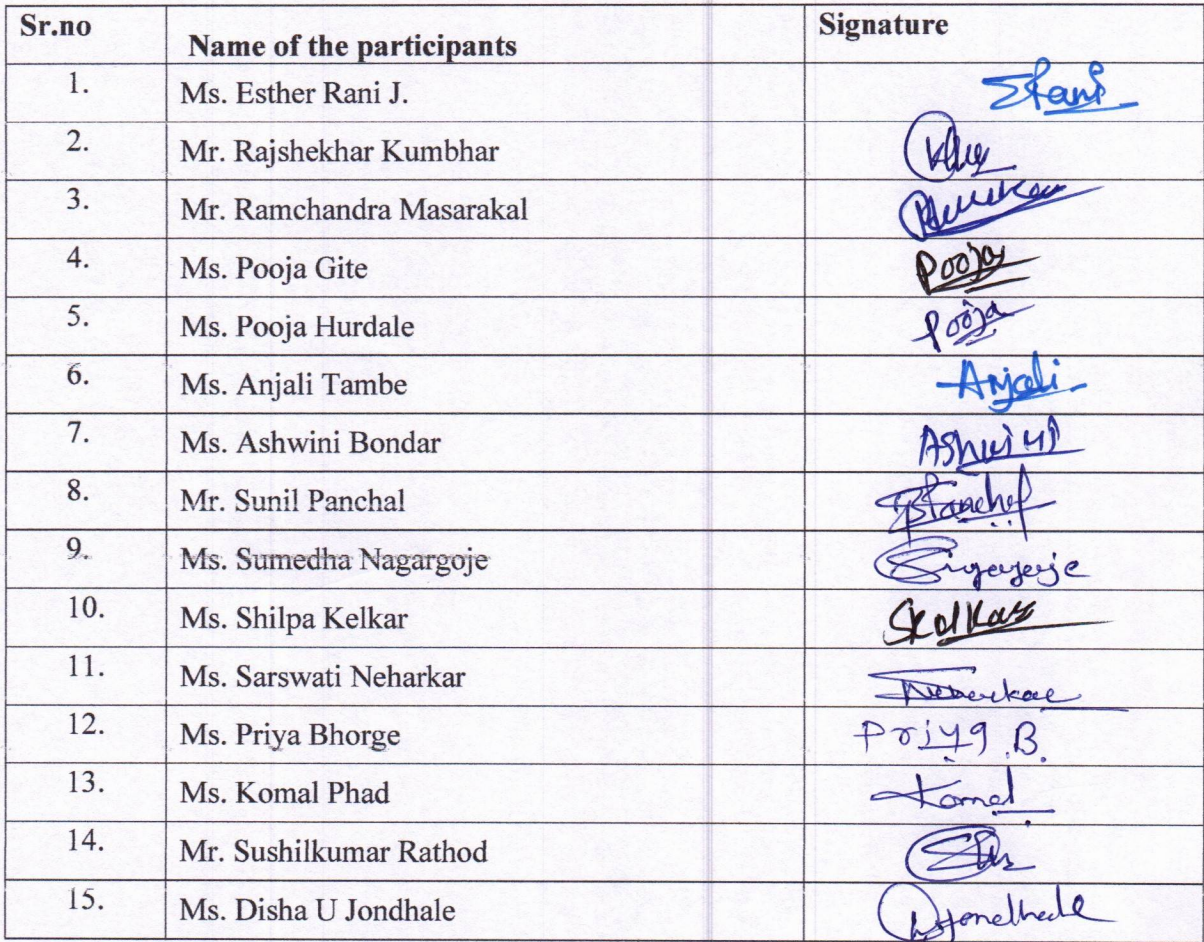 Sr.no Name of the participants Signature
1. Ms. Esther Rani J. ERani
2. Mr. Rajshekhar Kumbhar
3. Mr. Ramchandra Masarakal
4. Ms. Pooja Gite Pooja
5. Ms. Pooja Hurdale Pooja
6. Ms. Anjali Tambe Anjali
7. Ms. Ashwini Bondar Ashwini
8. Mr. Sunil Panchal
9. Ms. Sumedha Nagargoje
10. Ms. Shilpa Kelkar Skelkar
11. Ms. Sarswati Neharkar
12. Ms. Priya Bhorge Priya B.
13. Ms. Komal Phad Komal
14. Mr. Sushilkumar Rathod
15. Ms. Disha U Jondhale